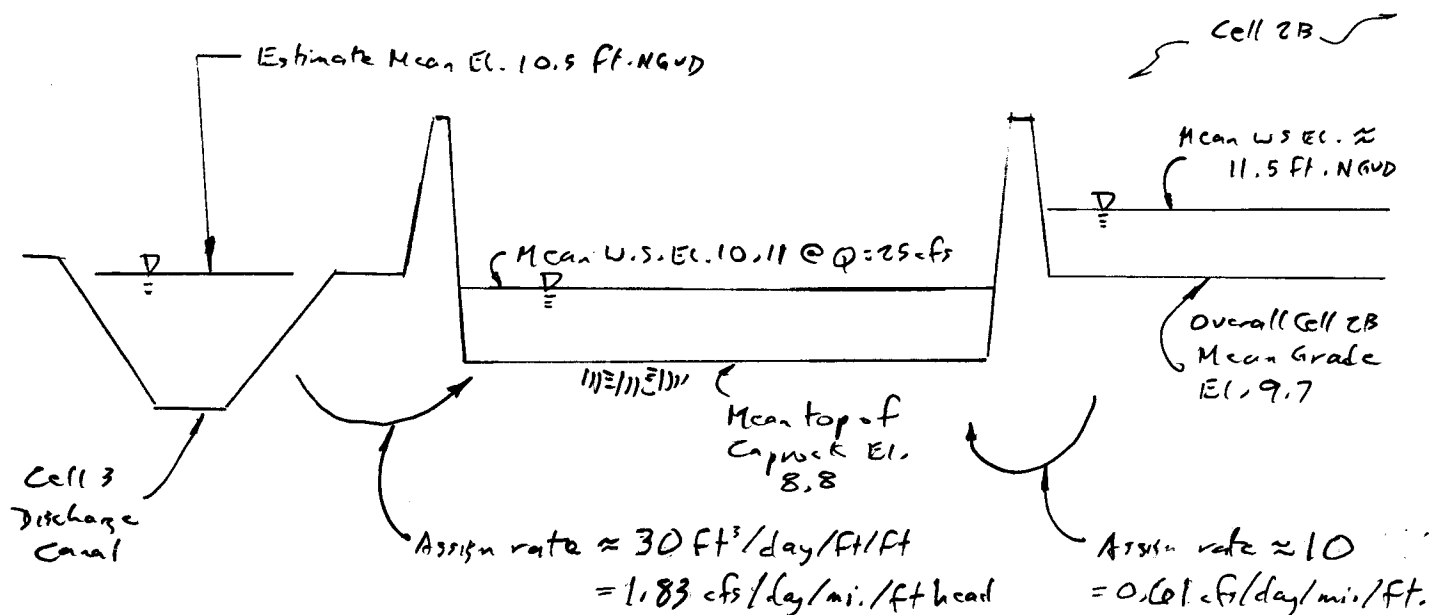 Cell 2B
Estimate Mean El. 10.5 ft. NGVD
Mean WS El. ≈
11.5 ft. NGVD
Mean W.S. El. 10.11 @ Q = 25 cfs
Overall Cell 2B
Mean Grade
El. 9.7
Mean top of
Caprock El.
8.8
Cell 3
Discharge
Canal
Assign rate ≈ 30 ft³/day/ft/ft
= 1.83 cfs/day/mi./ft head
Assign rate ≈ 10
= 0.61 cfs/day/mi./ft.